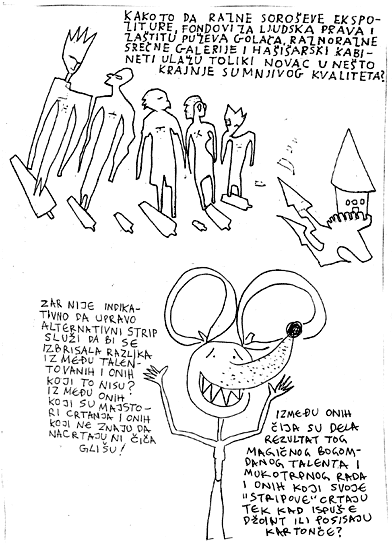 KAKO TO DA RAZNE SOROŠEVE EKSPO-
ZITURE, FONDOVI ZA LJUDSKA PRAVA I
ZAŠTITU PUŽEVA GOLAĆA, RAZNORAZNE
SREĆNE GALERIJE I HAŠIŠARSKI KABI-
NETI ULAŽU TOLIKI NOVAC U NEŠTO
KRAJNJE SUMNJIVOG KVALITETA?
ZAR NIJE INDIKA-
TIVNO DA UPRAVO
ALTERNATIVNI STRIP
SLUŽI DA BI SE
IZBRISALA RAZLIKA
IZMEĐU TALEN-
TOVANIH I ONIH
KOJI TO NISU?
IZMEĐU ONIH
KOJI SU MAJSTO-
RI CRTANJA I ONIH
KOJI NE ZNAJU DA
NACRTAJU NI ČIČA
GLIŠU!
IZMEĐU ONIH
ČIJA SU DELA
REZULTAT TOG
MAGIČNOG BOGOM-
DANOG TALENTA I
MUKOTRPNOG RADA
I ONIH KOJI SVOJE
"STRIPOVE" CRTAJU
TEK KAD ISPUŠE
DŽOINT ILI POSISAJU
KARTONČE?